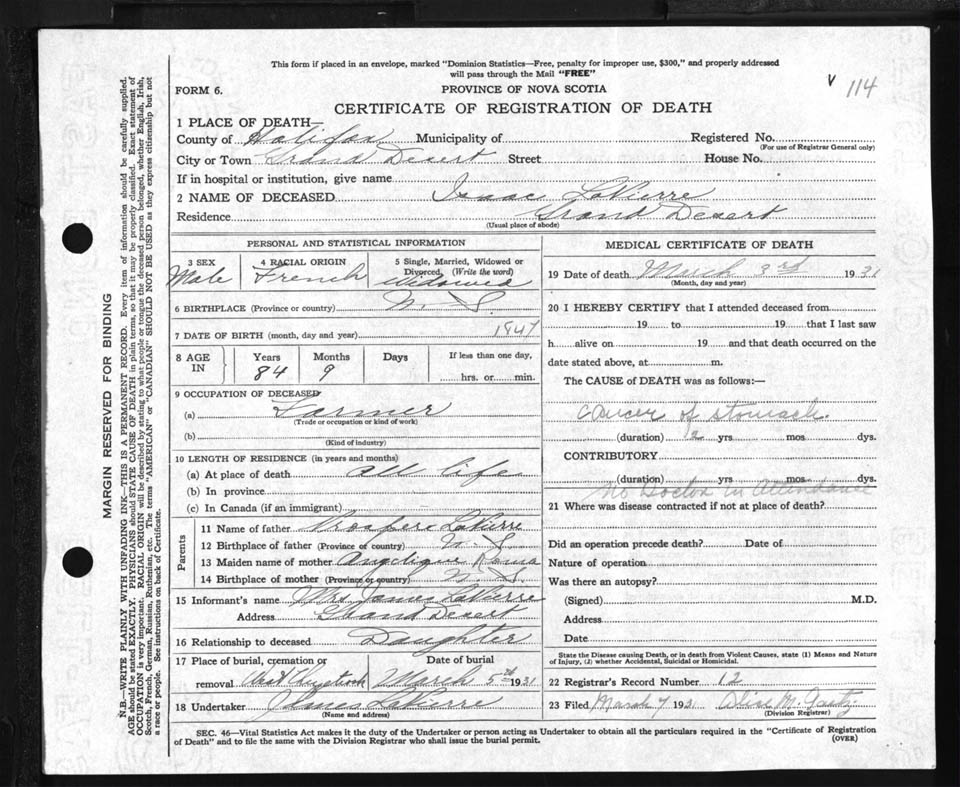 This form if placed in an envelope, marked "Dominion Statistics—Free, penalty for improper use, $300," and properly addressed
will pass through the Mail "FREE"
FORM 6. PROVINCE OF NOVA SCOTIA V 114
CERTIFICATE OF REGISTRATION OF DEATH
1 PLACE OF DEATH—
County of Halifax Municipality of Registered No.
(For use of Registrar General only)
City or Town Grand Desert Street House No.
If in hospital or institution, give name
2 NAME OF DECEASED Isaac LaPierre
Residence Grand Desert
(Usual place of abode)
PERSONAL AND STATISTICAL INFORMATION
3 SEX 4 RACIAL ORIGIN 5 Single, Married, Widowed or
Divorced, (Write the word)
Male French Widowed
6 BIRTHPLACE (Province or country) N. S.
7 DATE OF BIRTH (month, day and year) 1847
8 AGE IN Years Months Days If less than one day,
84 9 hrs. or min.
9 OCCUPATION OF DECEASED
(a) Farmer
(Trade or occupation or kind of work)
(b)
(Kind of industry)
10 LENGTH OF RESIDENCE (in years and months)
(a) At place of death all life
(b) In province
(c) In Canada (if an immigrant)
Parents
11 Name of father Prospere LaPierre
12 Birthplace of father (Province or country) N. S.
13 Maiden name of mother Angelique
14 Birthplace of mother (Province or country) N. S.
15 Informant's name Mrs James LaPierre
Address Grand Desert
16 Relationship to deceased Daughter
17 Place of burial, cremation or Date of burial
removal West Chezzetcook March 5th 1931
18 Undertaker James LaPierre
(Name and address)
MEDICAL CERTIFICATE OF DEATH
19 Date of death March 3rd 1931
(Month, day and year)
20 I HEREBY CERTIFY that I attended deceased from
19 to 19 that I last saw
h alive on 19 and that death occurred on the
date stated above, at m.
The CAUSE of DEATH was as follows:—
Cancer of Stomach.
(duration) 2 yrs mos dys.
CONTRIBUTORY
(duration) yrs mos dys.
No Doctor in Attendance
21 Where was disease contracted if not at place of death?
Did an operation precede death? Date of
Nature of operation
Was there an autopsy?
(Signed) M.D.
Address
Date
State the Disease causing Death, or in death from Violent Causes, state (1) Means and Nature
of Injury, (2) whether Accidental, Suicidal or Homicidal.
22 Registrar's Record Number 12
23 Filed March 7 1931 M.
(Division Registrar)
SEC. 46—Vital Statistics Act makes it the duty of the Undertaker or person acting as Undertaker to obtain all the particulars required in the "Certificate of Registration
of Death" and to file the same with the Division Registrar who shall issue the burial permit. (OVER)
MARGIN RESERVED FOR BINDING
N.B.—WRITE PLAINLY WITH UNFADING INK—THIS IS A PERMANENT RECORD. Every item of information should be carefully supplied.
AGE should be stated EXACTLY. PHYSICIANS should STATE CAUSE OF DEATH in plain terms, so that it may be properly classified. Exact statement of
OCCUPATION is very important. RACIAL ORIGIN will be described by stating to what people or tongue the deceased person belonged, whether English, Irish,
Scotch, French, German, Russian, Ruthenian, etc. The terms "AMERICAN" or "CANADIAN" SHOULD NOT BE USED as they express citizenship but not
a race or people. See instructions on back of Certificate.